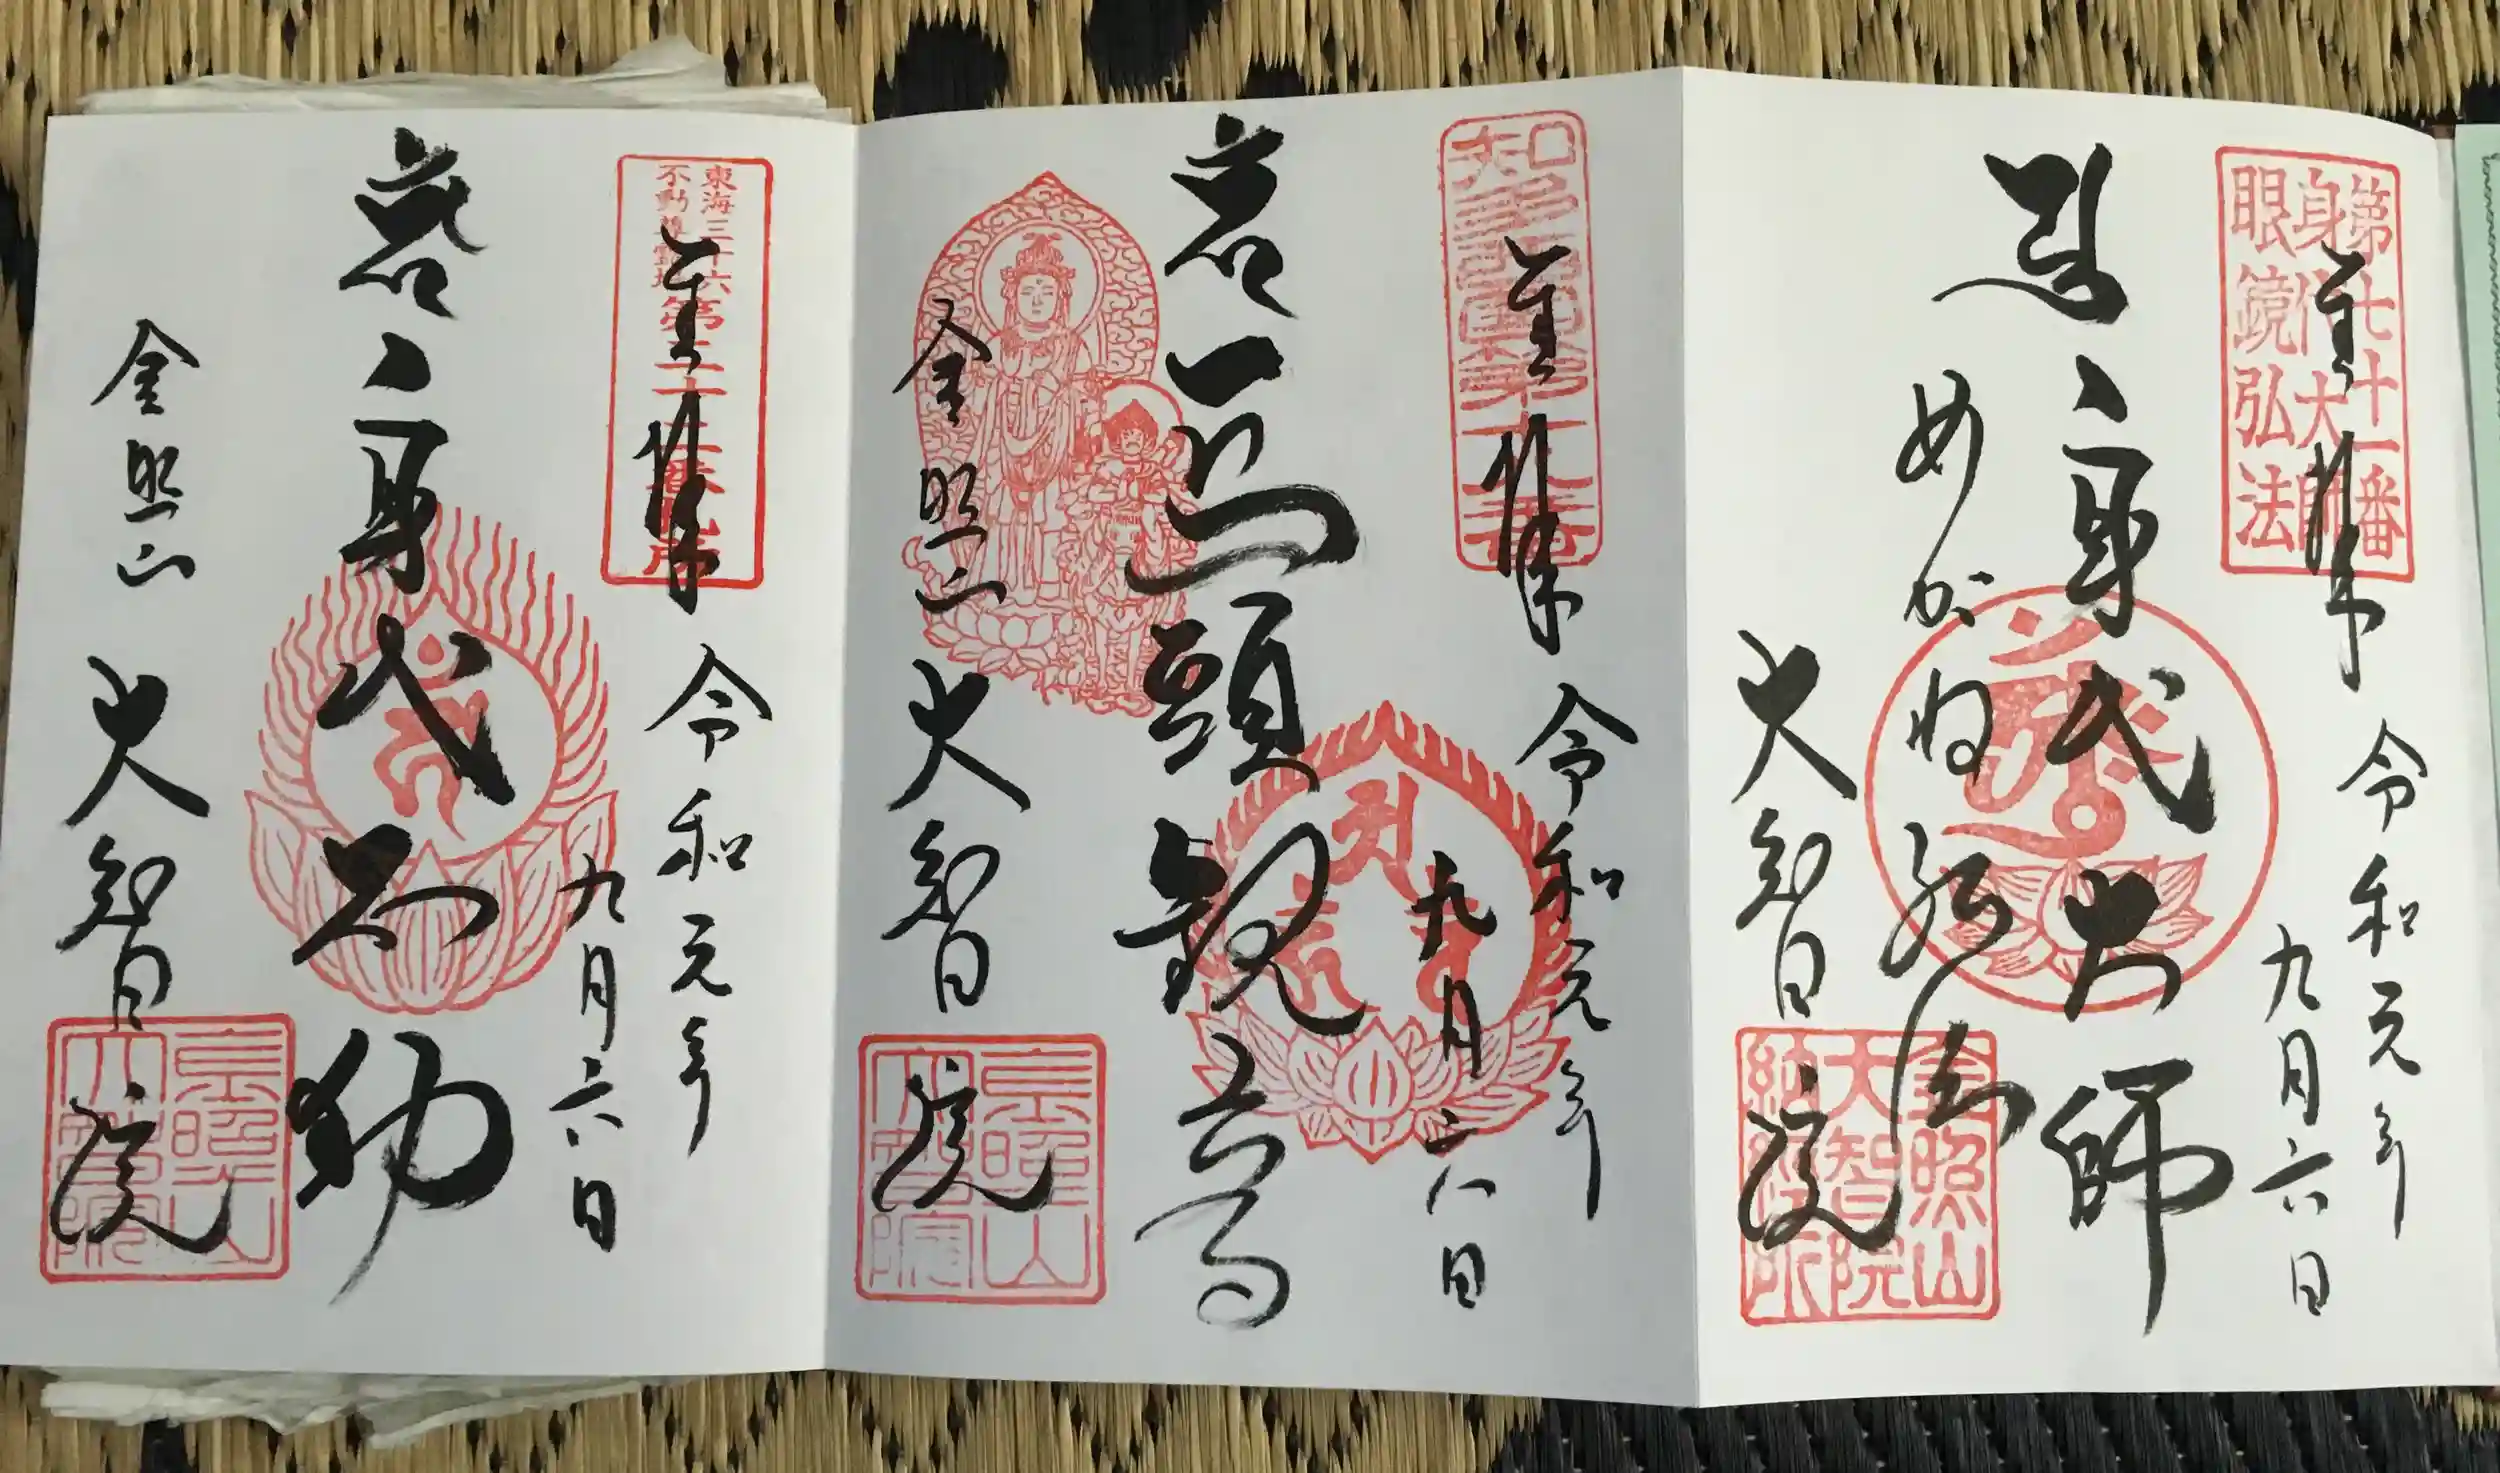 第七十一番
身代大師
眼鏡弘法
奉拝
令和元年
九月六日
身代大師
めがね弘法
大智院
金照山
大智院
納経所
奉拝
令和元年
九月六日
頭観音
金照山
大智院
金照山
大智院
東海三十六
不動尊霊場
第二十二番札所
奉拝
令和元年
九月六日
身代不動
金照山
大智院
金照山
大智院